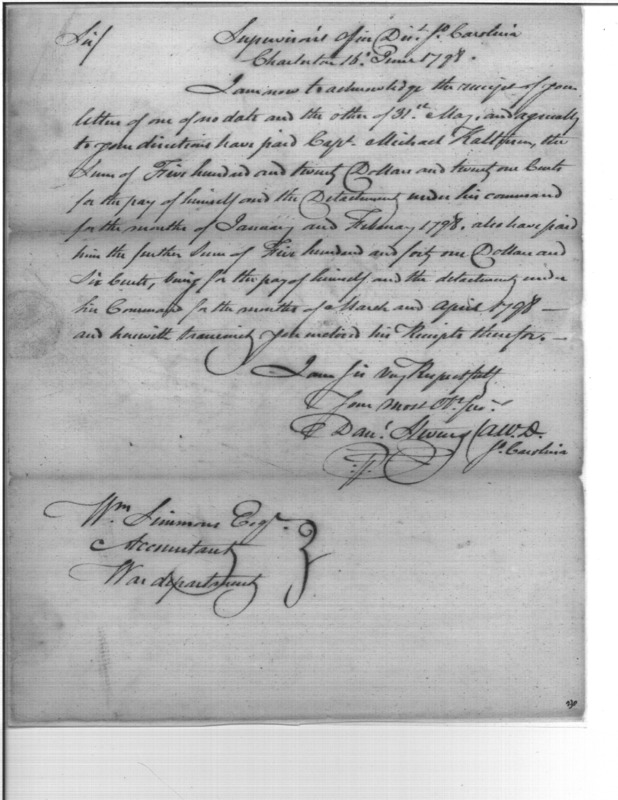 Sir/ Supervisor's Office Dist. So. Carolina
Charleston 16th June 1798.
I am now to acknowledge the receipt of your
letters of one of no date and the other of 31st May, and agreeably
to your directions have paid Capt. Michael Kalteisen, the
Sum of Five hundred and twenty Dollars and twenty one Cents
for the pay of himself and the Detachment under his command
for the months of January and February 1798. also have paid
him the further Sum of Five hundred and forty one Dollars and
Six Cents, being for the pay of himself and the detachment under
his Command for the months of March and April 1798 —
and herewith transmit you inclosed his Receipts therefor. —
I am Sir Very Respectfully
Your most Ob. Serv.
Danl. Stevens A.W.D.
So. Carolina
Wm Simmons Esqr.
Accountant
War department